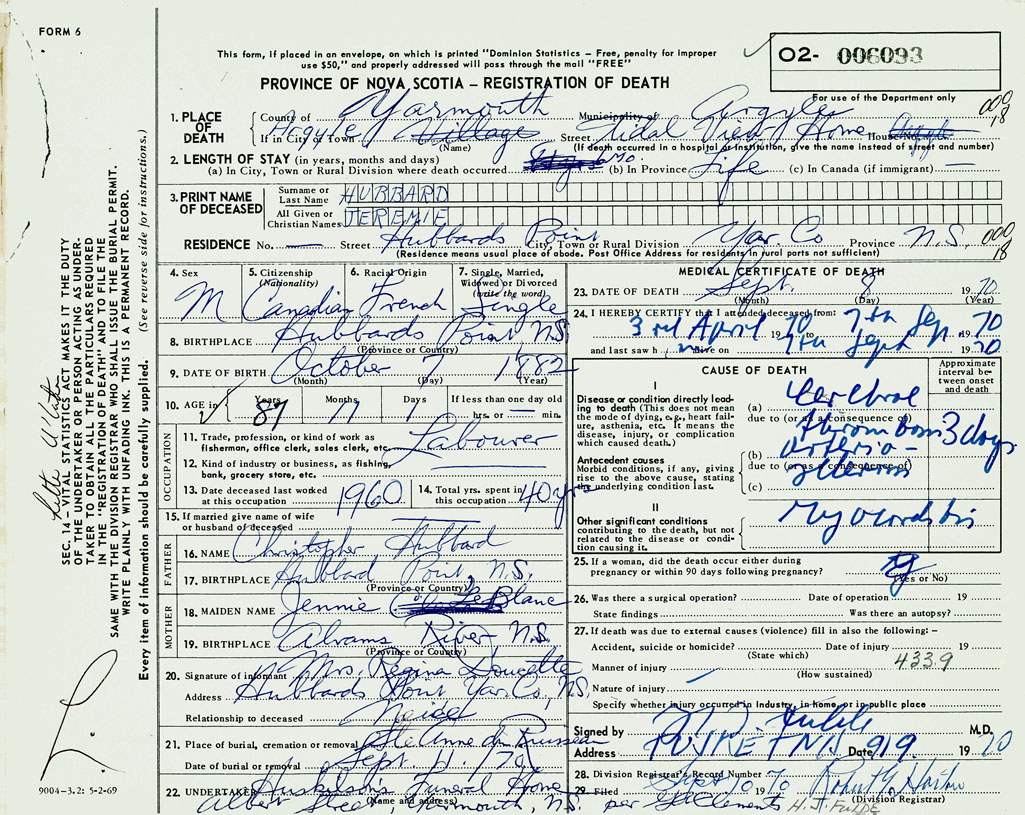 FORM 6
This form, if placed in an envelope, on which is printed "Dominion Statistics – Free, penalty for improper
use $50," and properly addressed will pass through the mail "FREE"
O2- 006093
PROVINCE OF NOVA SCOTIA – REGISTRATION OF DEATH
For use of the Department only
1. PLACE OF DEATH
County of Yarmouth Municipality of Argyle
000 18
If in City or Town Argyle Village Street Tidal View Home House
(Name) (If death occurred in a hospital or institution, give the name instead of street and number)
2. LENGTH OF STAY (in years, months and days)
(a) In City, Town or Rural Division where death occurred mo. (b) In Province Life (c) In Canada (if immigrant) —
3. PRINT NAME OF DECEASED
Surname or Last Name HUBBARD
All Given or Christian Names JEREMIE
RESIDENCE No. — Street Hubbards Point City, Town or Rural Division Yar. Co Province N.S. 000 18
(Residence means usual place of abode. Post Office Address for residents in rural parts not sufficient)
4. Sex M
5. Citizenship (Nationality) Canadian
6. Racial Origin French
7. Single, Married, Widowed or Divorced (write the word) Single
8. BIRTHPLACE Hubbards Point NS
(Province or Country)
9. DATE OF BIRTH October 7 1882
(Month) (Day) (Year)
10. AGE in Years 87 Months 11 Days 1 If less than one day old
hrs. or — min.
OCCUPATION
11. Trade, profession, or kind of work as fisherman, office clerk, sales clerk, etc. Labourer
12. Kind of industry or business, as fishing, bank, grocery store, etc.
13. Date deceased last worked at this occupation 1960
14. Total yrs. spent in this occupation 40 yrs
15. If married give name of wife or husband of deceased
FATHER
16. NAME Christopher Hubbard
17. BIRTHPLACE Hubbard Point, N.S.
(Province or Country)
MOTHER
18. MAIDEN NAME Jennie LeBlanc
19. BIRTHPLACE Abrams River N.S.
(Province or Country)
20. Signature of informant Mrs. Regina Doucette
Address Hubbards Point Yar. Co, NS
Relationship to deceased Neice
21. Place of burial, cremation or removal Ste Anne du Ruisseau
Date of burial or removal Sept. 11 / 70
22. UNDERTAKER Huskilson's Funeral Home
(Name and address)
Albert Street, Yarmouth, N.S. per
MEDICAL CERTIFICATE OF DEATH
23. DATE OF DEATH Sept. 8 1970
(Month) (Day) (Year)
24. I HEREBY CERTIFY that I attended deceased from:
3rd April 1970 to 7th Sep. 1970
and last saw him alive on 7th Sept 1970
CAUSE OF DEATH
Approximate interval between onset and death
I
Disease or condition directly leading to death (This does not mean the mode of dying, e.g., heart failure, asthenia, etc. It means the disease, injury, or complication which caused death.)
(a) Cerebral
due to (or as a consequence of)
thrombosis 3 days
Antecedent causes
Morbid conditions, if any, giving rise to the above cause, stating the underlying condition last.
(b) arterio-
due to (or as a consequence of)
sclerosis
(c)
II
Other significant conditions contributing to the death, but not related to the disease or condition causing it.
Myocarditis
25. If a woman, did the death occur either during pregnancy or within 90 days following pregnancy?
(Yes or No)
26. Was there a surgical operation? Date of operation 19
State findings Was there an autopsy?
27. If death was due to external causes (violence) fill in also the following: –
Accident, suicide or homicide? Date of injury 19
(State which)
Manner of injury 433.9
(How sustained)
Nature of injury
Specify whether injury occurred in industry, in home, or in public place
Signed by M.D.
Address Date 9/9. 1970
28. Division Registrar's Record Number
29. Filed Sept 10 1970
(Division Registrar)
H. J. FULDE
SEC. 14 – VITAL STATISTICS ACT MAKES IT THE DUTY
OF THE UNDERTAKER OR PERSON ACTING AS UNDERTAKER
TO OBTAIN ALL THE PARTICULARS REQUIRED
IN THE "REGISTRATION OF DEATH" AND TO FILE THE
SAME WITH THE DIVISION REGISTRAR WHO SHALL ISSUE THE BURIAL PERMIT.
WRITE PLAINLY WITH UNFADING INK. THIS IS A PERMANENT RECORD.
Every item of information should be carefully supplied. (See reverse side for instructions.)
9004-3.2: 5-2-69